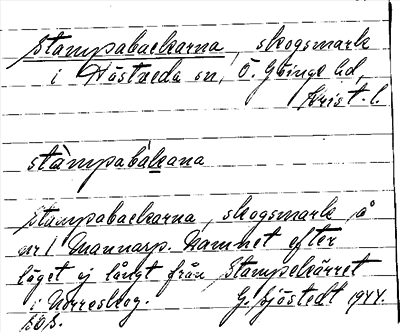 Stampabackarna, skogsmark
i Hästveda sn, Ö. Göinge hd,
Krist. l.
stàmpabàkana
Stampabackarna, skogsmark å
nr 1 Mannarp. Namnet efter
läget ej långt från Stampekärret
i Norreskog. G. Sjöstedt 1944.